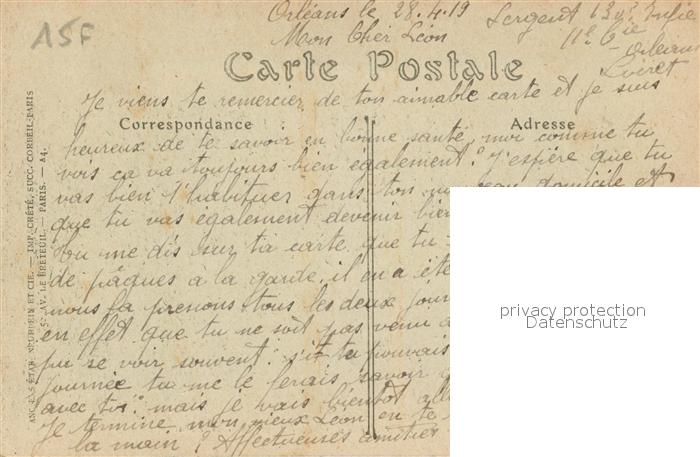 ASF
Orléans le 28.4.19
Sergent 131e Infie
Mon Cher Léon
11e Cie
Orléans
Loiret
Carte Postale
Je viens te remercier de ton aimable carte et je suis
Correspondance
Adresse
heureux de te savoir en bonne santé moi comme tu
vois ça va toujours bien également. J'espère que tu
vas bien t'habituer dans ton domicile et
que tu vas également devenir bien
Tu me dis sur ta carte que tu
de pâques à la garde, il en a été
nous la prenons tous les deux jours
en effet que tu ne soit pas venu a
pu se voir souvent. si tu pouvais
journée tu me le ferais savoir
avec toi. mais je vais bientôt all
Je termine mon vieux Léon en te
la main. Affectueuses amitiés
ANC. ETAB. NEURDEIN ET CIE. — IMP. CRÉTÉ, SUCC. CORBEIL-PARIS
52, AV. DE BRETEUIL. — PARIS. — A4.
privacy protection
Datenschutz